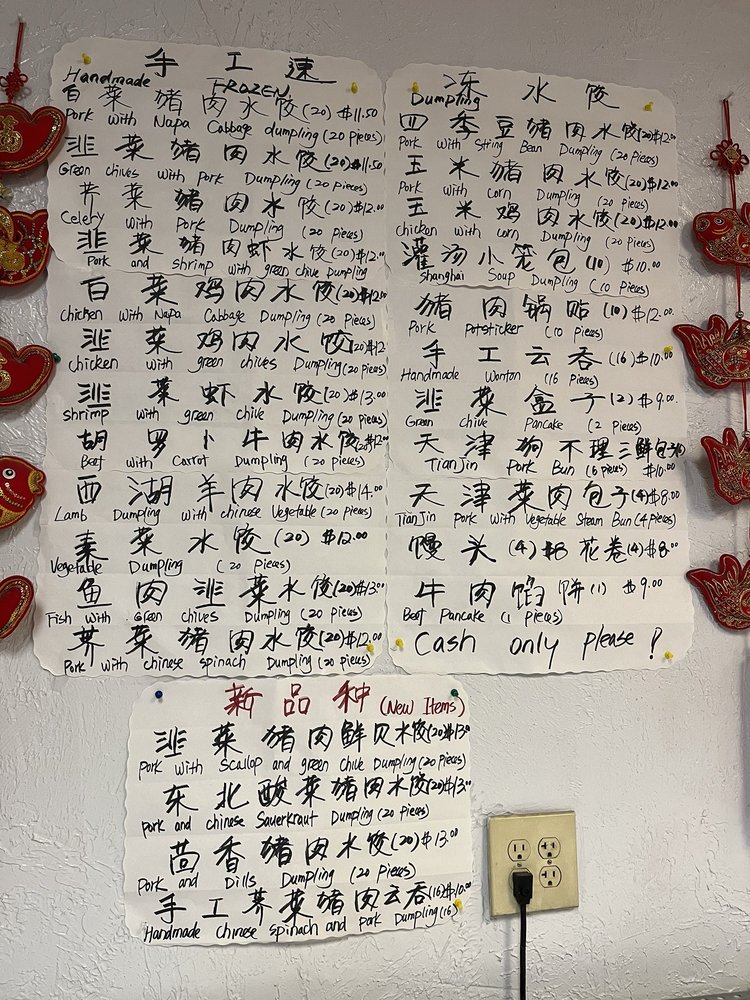 手 工 速
Handmade FROZEN
白菜猪肉水饺(20) $11.50
Pork with Napa Cabbage dumpling (20 pieces)
韭菜猪肉水饺(20) $11.50
Green chives with Pork Dumpling (20 pieces)
芹菜猪肉水饺(20) $12.00
Celery with Pork Dumpling (20 pieces)
韭菜猪肉虾水饺(20) $12.00
Pork and shrimp with green chive Dumpling
白菜鸡肉水饺(20) $12.00
chicken with Napa Cabbage Dumpling (20 pieces)
韭菜鸡肉水饺(20) $12
chicken with green chives Dumpling (20 pieces)
韭菜虾水饺(20) $13.00
shrimp with green chive Dumpling (20 pieces)
胡罗卜牛肉水饺(20) $12.00
Beef with Carrot Dumpling (20 pieces)
西湖羊肉水饺(20) $14.00
Lamb Dumpling with chinese Vegetable (20 pieces)
素菜水饺(20) $12.00
Vegetable Dumpling (20 pieces)
鱼肉韭菜水饺(20) $13.00
Fish with Green chives Dumpling (20 pieces)
荠菜猪肉水饺(20) $12.00
Pork with chinese spinach Dumpling (20 pieces)
冻 水 饺
Dumpling
四季豆猪肉水饺(20) $12.00
Pork with String Bean Dumpling (20 pieces)
玉米猪肉水饺(20) $12.00
Pork with corn Dumpling (20 pieces)
玉米鸡肉水饺(20) $12.00
chicken with corn Dumpling (20 pieces)
灌汤小笼包(10) $10.00
Shanghai Soup Dumpling (10 pieces)
猪肉锅贴(10) $12.00
Pork Potsticker (10 pieces)
手工云吞(16) $10.00
Handmade Wonton (16 pieces)
韭菜盒子(2) $9.00
Green chive Pancake (2 pieces)
天津狗不理三鲜包(6)
TianJin Pork Bun (6 pieces) $10.00
天津菜肉包子(4) $8.00
TianJin Pork with Vegetable Steam Bun (4 pieces)
馒头(4) $8 花卷(4) $8.00
牛肉馅饼(1) $9.00
Beef Pancake (1 pieces)
Cash only please!
新品种 (New Items)
韭菜猪肉鲜贝水饺(20) $13.00
Pork with Scallop and green chive Dumpling (20 pieces)
东北酸菜猪肉水饺(20) $13.00
pork and chinese Sauerkraut Dumpling (20 pieces)
茴香猪肉水饺(20) $13.00
Pork and Dills Dumpling (20 pieces)
手工荠菜猪肉云吞(16) $10.00
Handmade chinese spinach and pork Dumpling (16)